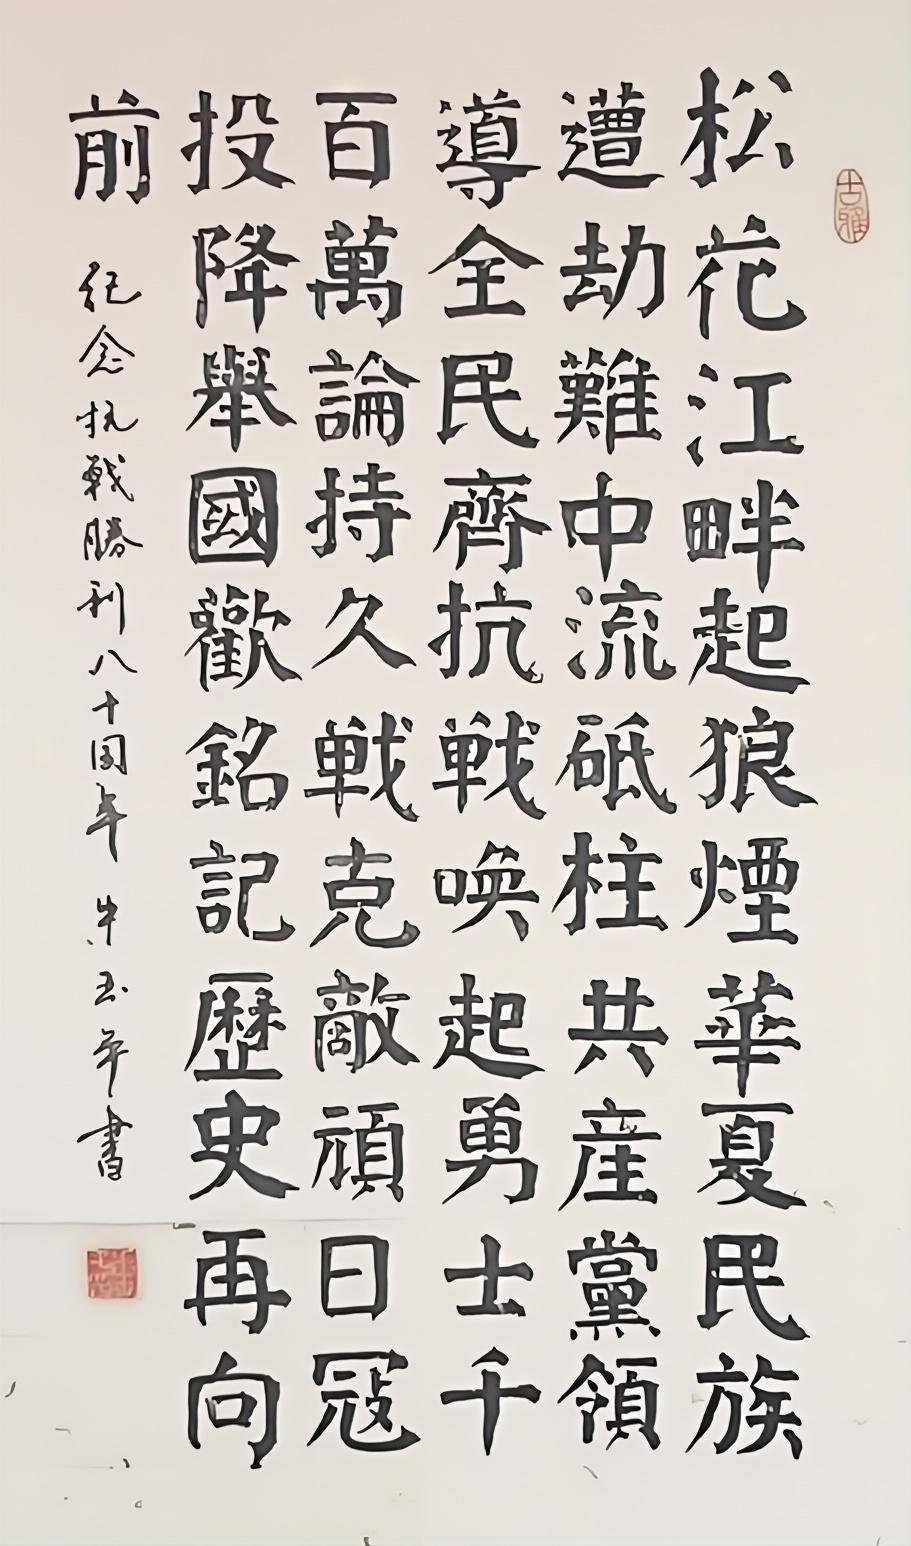 松花江畔起狼煙華夏民族
遭劫難中流砥柱共産黨領
導全民齊抗戰唤起勇士千
百萬論持久戰克敵頑日寇
投降舉國歡銘記歷史再向
前
紀念抗戰勝利八十周年 朱玉年書